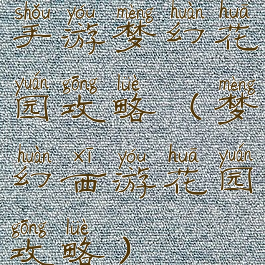 shǒu yóu mèng huàn huā
手游梦幻花
yuán gōng lüè mèng
园攻略（梦
huàn xī yóu huā yuán
幻西游花园
gōng lüè
攻略）